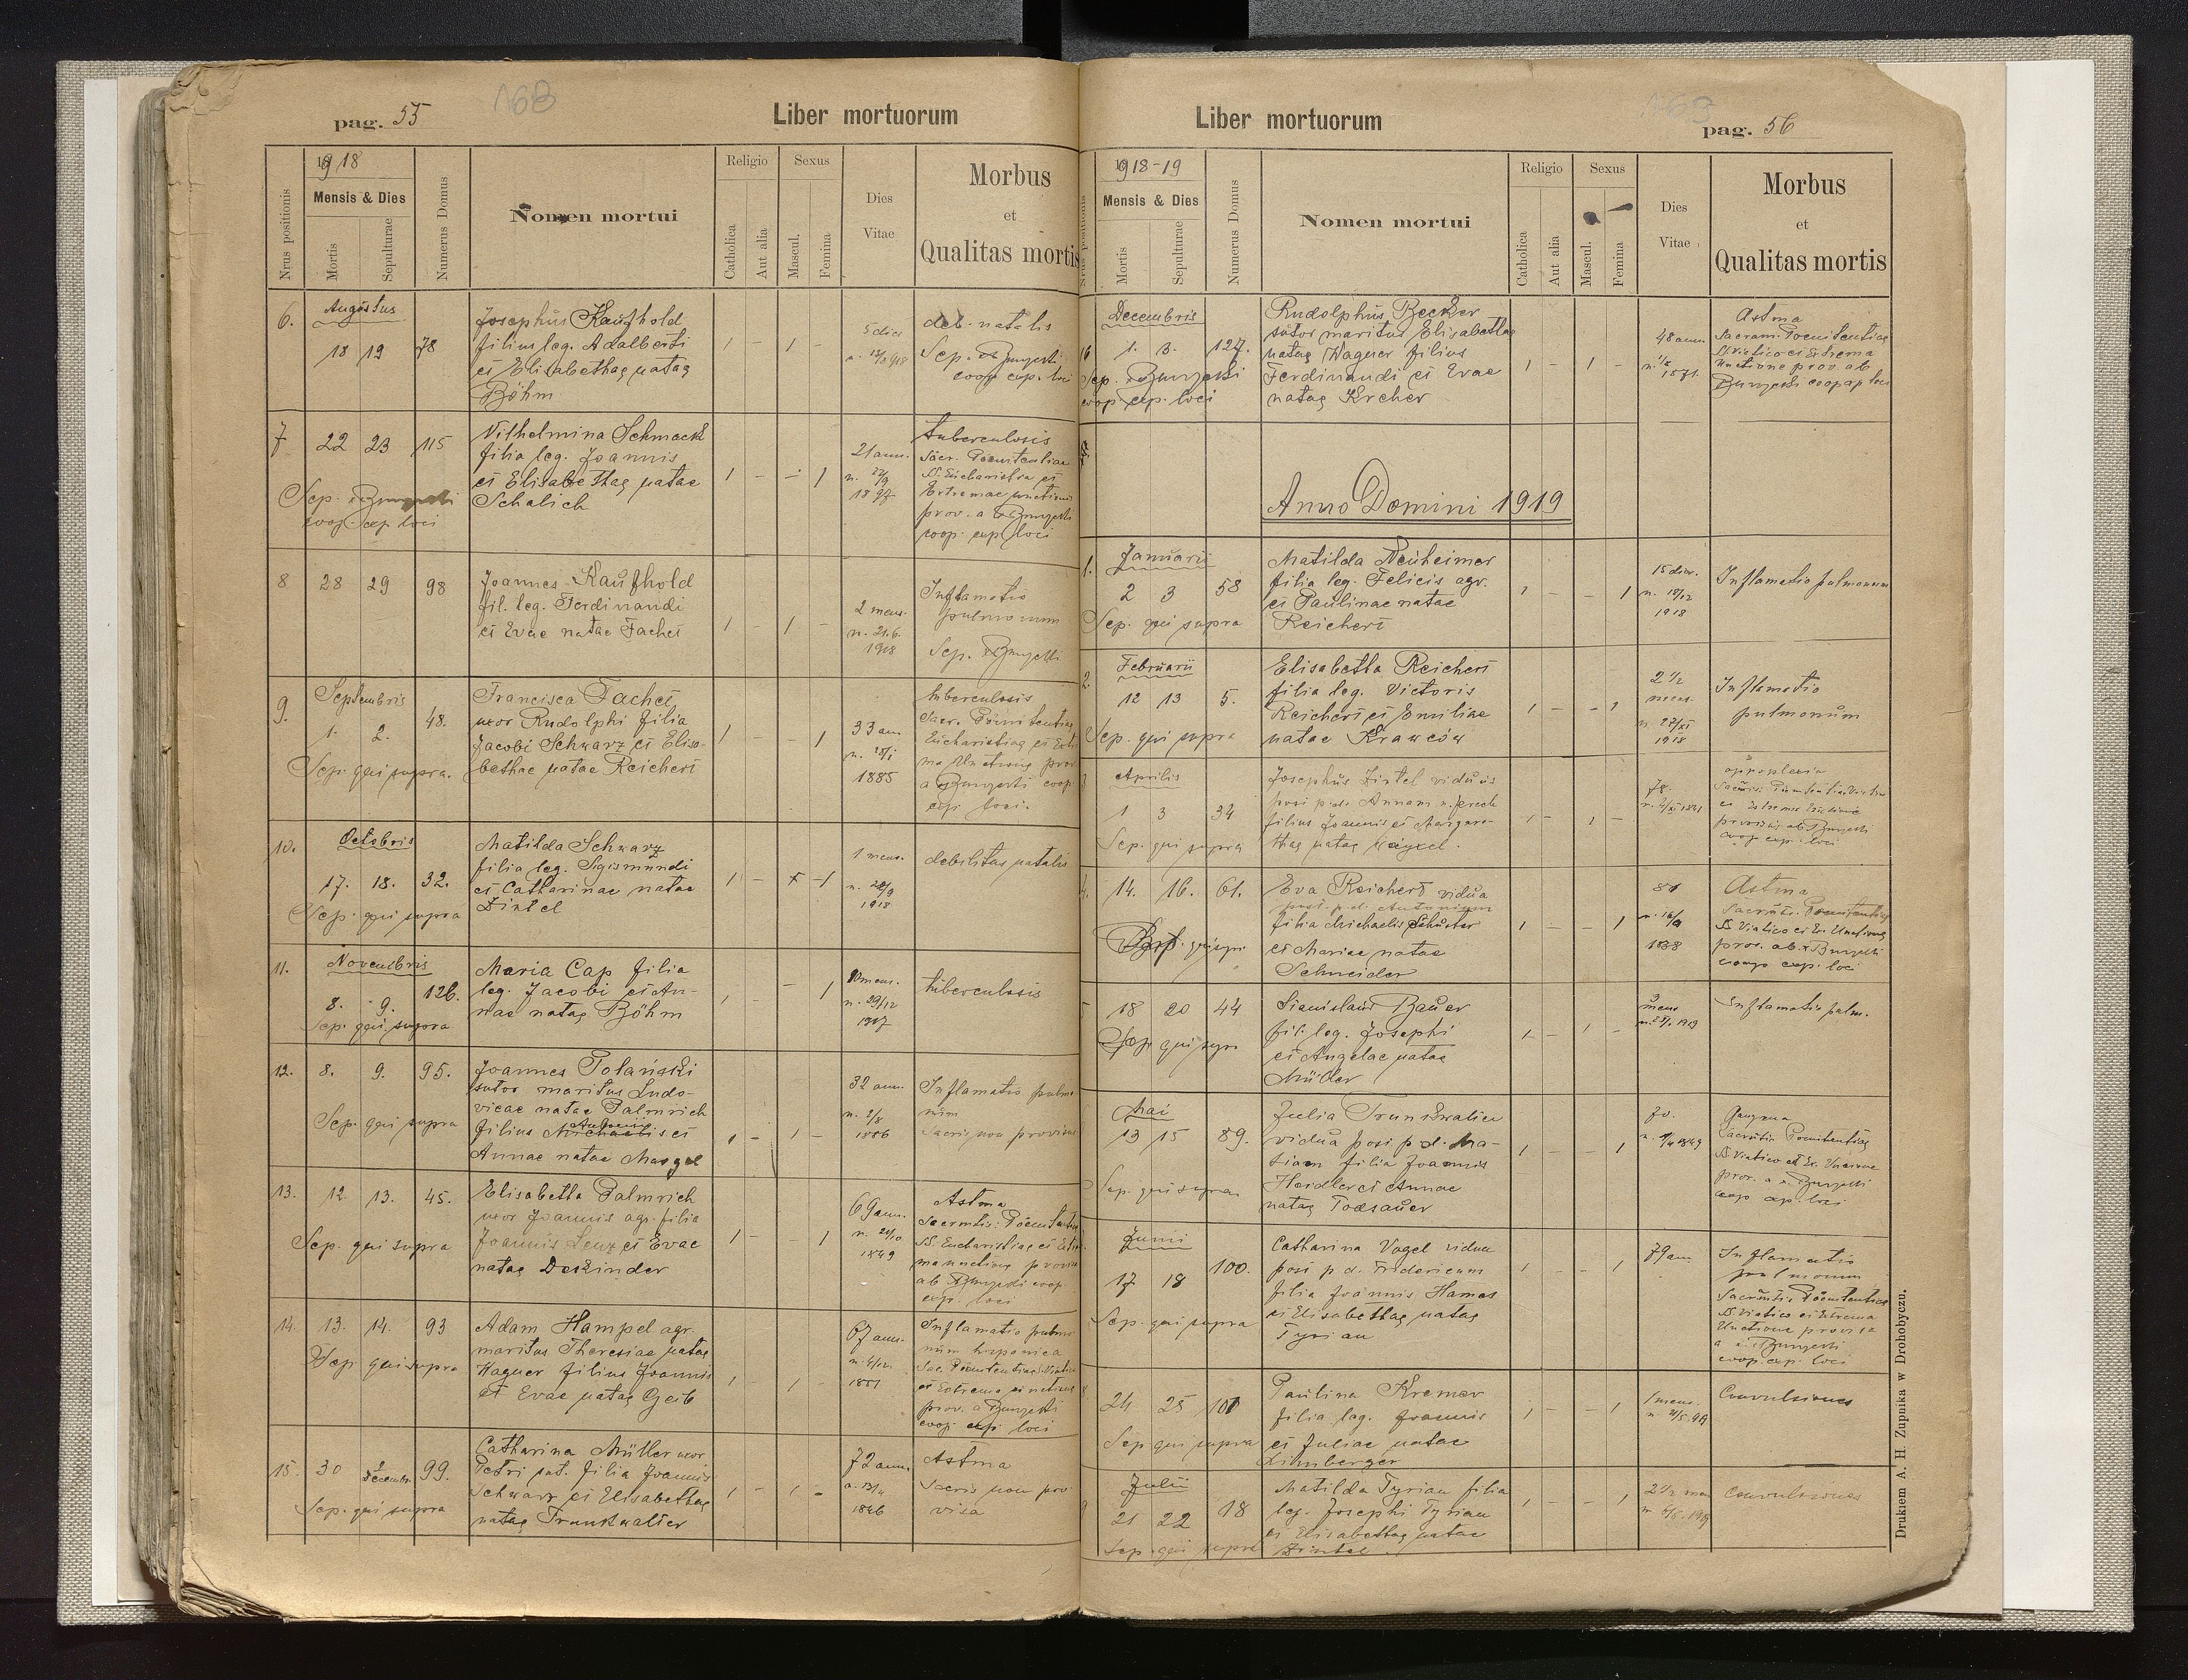 pag. 55
168
Liber mortuorum
1918
Nrus positionis
Mensis & Dies
Mortis
Sepulturae
Numerus Domus
Nomen mortui
Religio
Catholica
Aut alia
Sexus
Mascul.
Femina
Dies
Vitae
Morbus
et
Qualitas mortis
6. Augustus
18 19 78
Josephus Kaufhold
filius leg. Adalberti
et Elisabethae natae
Böhm
5 dies
deb. natalis
coop. exp. loci
7 22 23 115
Vilhelmina Schmack
filia leg. Joannis
et Elisabethae natae
Schalich
coop. exp. loci
21 ann.
tuberculosis
Sacr. Poenitentiae
SS. Eucharistia et
Extremae unctionis
coop. exp. loci
8 28 29 98
Joannes Kaufhold
fil. leg. Ferdinandi
et Evae natae Fachet
2 mens.
n. 21.6.
1918
Inflamatio
pulmonum
9. Septembris
1. 2. 48.
Sep. qui supra.
Francisca Fachet
uxor Rudolphi filia
Jacobi Schwarz et Elisa-
bethae natae Reichert
33 ann.
n. 18/1
1885
tuberculosis
Sacr. Poenitentiae
Eucharistiae et Extre
coop.
exp. loci.
10. Octobris
17. 18. 32.
Sep. qui supra
Matilda Schwarz
filia leg. Sigismundi
et Catharinae natae
Zintel
1 mens.
1918
debilitas natalis
11. Novembris
8. 9. 126.
Sep. qui supra
Maria Cap filia
leg. Jacobi et An-
nae natae Böhm
10 mens.
n. 29/12
1917
tuberculosis
12. 8. 9. 95.
Sep. qui supra
Joannes Polański
sutor maritus Ludo-
vicae natae Palmrich
filius Antonii et
Annae natae Margel
32 ann.
n. 2/8
1886
Inflamatio pulmo
num
Sacris non provisus
13. 12 13. 45.
Sep. qui supra
Elisabetha Palmrich
uxor Joannis agr. filia
Joannis Lenz et Evae
natae Deskinder
69 ann.
1849
Astma
Sacrmtis. Poenitentiae
SS. Eucharistiae et Extre
coop.
exp. loci
14. 13. 14. 93
Sep. qui supra
Adam Hampel agr.
maritus Theresiae natae
Wagner filius Joannis
et Evae natae Geib
67 ann.
1851
Inflamatio pulmo
num
coop. exp. loci
15. 30 2 Decembr. 99.
Sep. qui supra
Catharina Müller uxor
Petri sut. filia Joannis
Schwarz et Elisabethae
natae Trunkwalter
72 ann.
1846
Astma
Sacris non pro
visa
Liber mortuorum
169
pag. 56
1918-19
Nrus positionis
Mensis & Dies
Mortis
Sepulturae
Numerus Domus
Nomen mortui
Religio
Catholica
Aut alia
Sexus
Mascul.
Femina
Dies
Vitae
Morbus
et
Qualitas mortis
16 Decembris
1. 3. 127.
coop. exp. loci
Rudolphus Becker
sutor maritus Elisabethae
natae Wagner filius
Ferdinandi et Evae
natae Kreher
48 ann.
1871
Astma
Sacram. Poenitentiae
SS. Viatico et Extrema
Unctione prov. ab
coop. exp. loci
Anno Domini 1919
1. Januarii
2 3 58
Sep. qui supra
Matilda Neuheimer
filia leg. Felicis agr.
et Paulinae natae
Reichert
15 dier.
n. 18/12
1918
Inflamatio pulmonum
2. Februarii
12 13 5.
Sep. qui supra
Elisabetha Reichert
filia leg. Victoris
Reichert et Emiliae
natae Krawców
2 1/2
mens.
n. 27/XI
1918
Inflamatio
pulmonum
3 Aprilis
1 3 34
Sep. qui supra
Josephus Zintel viduus
post p. d. Annam
filius Joannis et Margare-
thae natae
78.
appoplexia
coop. exp. loci
4. 14. 16. 61.
Eva Reichert vidua
post p. d. Antonium
filia Michaelis Schuster
et Mariae natae
Schneider
1838
Astma
Sacrmts. Poenitentiae
SS. Viatico et Ex. Unctione
coop. exp. loci
5 18 20 44
Sep. qui supr.
Stanislaus Bauer
fil. leg. Josephi
et Angelae natae
Müller
3
mens
Inflamatio pulm.
Mai
13 15 89.
Sep. qui supra
Julia Trunkwalter
vidua post p. d. Ma-
tiam filia Joannis
Heidler et Annae
natae
70.
Sacrmtis. Poenitentiae
SS. Viatico et Ex. Unctione
coop. exp. loci
Junii
17 18 100.
Sep. qui supra
Catharina Vogel vidua
post p. d. Fridericum
filia Joannis Hamas
et Elisabethae natae
Tyrian
79 ann
Inflamatio
pulmonum
Sacrmtis. Poenitentiae
SS. Viatico et Extrema
Unctione provisa
coop. exp. loci
8 24 25 101
Sep qui supra
Paulina Kremer
filia leg. Joannis
et Juliae natae
Limberger
1 mens.
Convulsiones
9 Julii
21 22 18
Sep. qui supra
Matilda Tyrian filia
leg. Josephi Tyrian
et Elisabethae natae
Zintel
2 1/2 men
Convulsiones
Drukiem A. H. Żupnika w Drohobyczu.